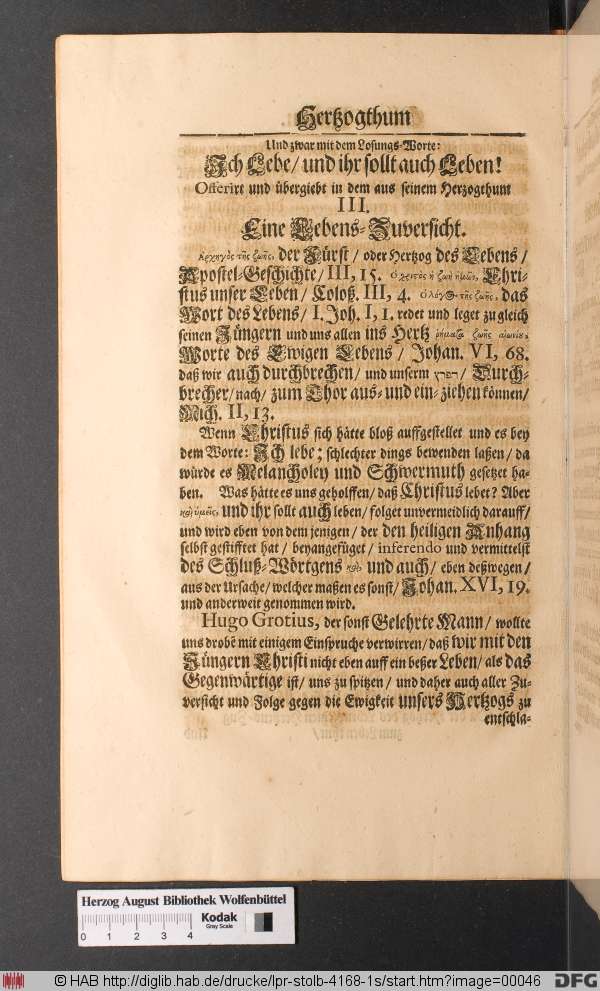 Hertzogthum
Und zwar mit dem Losungs-Worte:
Ich Lebe / und ihr sollt auch Leben!
Offerirt und übergiebt in dem aus seinem Herzogthum
III.
Eine Lebens-Zuversicht.
Ἀρχηγὸς τῆς ζωῆς, der Fürst / oder Hertzog des Lebens /
Apostel-Geschichte / III, 15. ὁ χριστὸς ἡ ζωὴ ἡμῶν, Chri-
stus unser Leben / Coloß. III, 4. ὁ λόγος τῆς ζωῆς, das
Wort des Lebens / I. Joh. I, 1. redet und leget zugleich
seinen Jüngern und uns allen ins Hertz ῥήματα ζωῆς αἰωνίου,
Worte des Ewigen Lebens / Johan. VI, 68.
daß wir auch durchbrechen / und unserm הפרץ / Durch-
brecher / nach / zum Thor aus- und ein-ziehen können /
Mich. II, 13.
Wenn Christus sich hätte bloß auffgestellet und es bey
dem Worte: Ich lebe; schlechter dings bewenden laßen / da
würde es Melancholey und Schwermuth gesetzet ha-
ben. Was hätte es uns geholffen / daß Christus lebet? Aber
καὶ ὑμεῖς, und ihr sollt auch leben / folget unvermeidlich darauff /
und wird eben von dem jenigen / der den heiligen Anhang
selbst gestifftet hat / beyangefüget / inferendo und vermittelst
des Schluß-Wörtgens καὶ und auch / eben deßwegen /
aus der Ursache / welcher maßen es sonst / Johan. XVI, 19.
und anderweit genommen wird.
Hugo Grotius, der sonst Gelehrte Mann / wollte
uns drobẽ mit einigem Einspruche verwirren / daß wir mit den
Jüngern Christi nicht eben auff ein beßer Leben / als das
Gegenwärtige ist / uns zu spitzen / und daher auch aller Zu-
versicht und Folge gegen die Ewigkeit unsers Hertzogs zu
entschla-
Herzog August Bibliothek Wolfenbüttel
0 1 2 3 4
Kodak
Gray Scale
© HAB http://diglib.hab.de/drucke/lpr-stolb-4168-1s/start.htm?image=00046
DFG